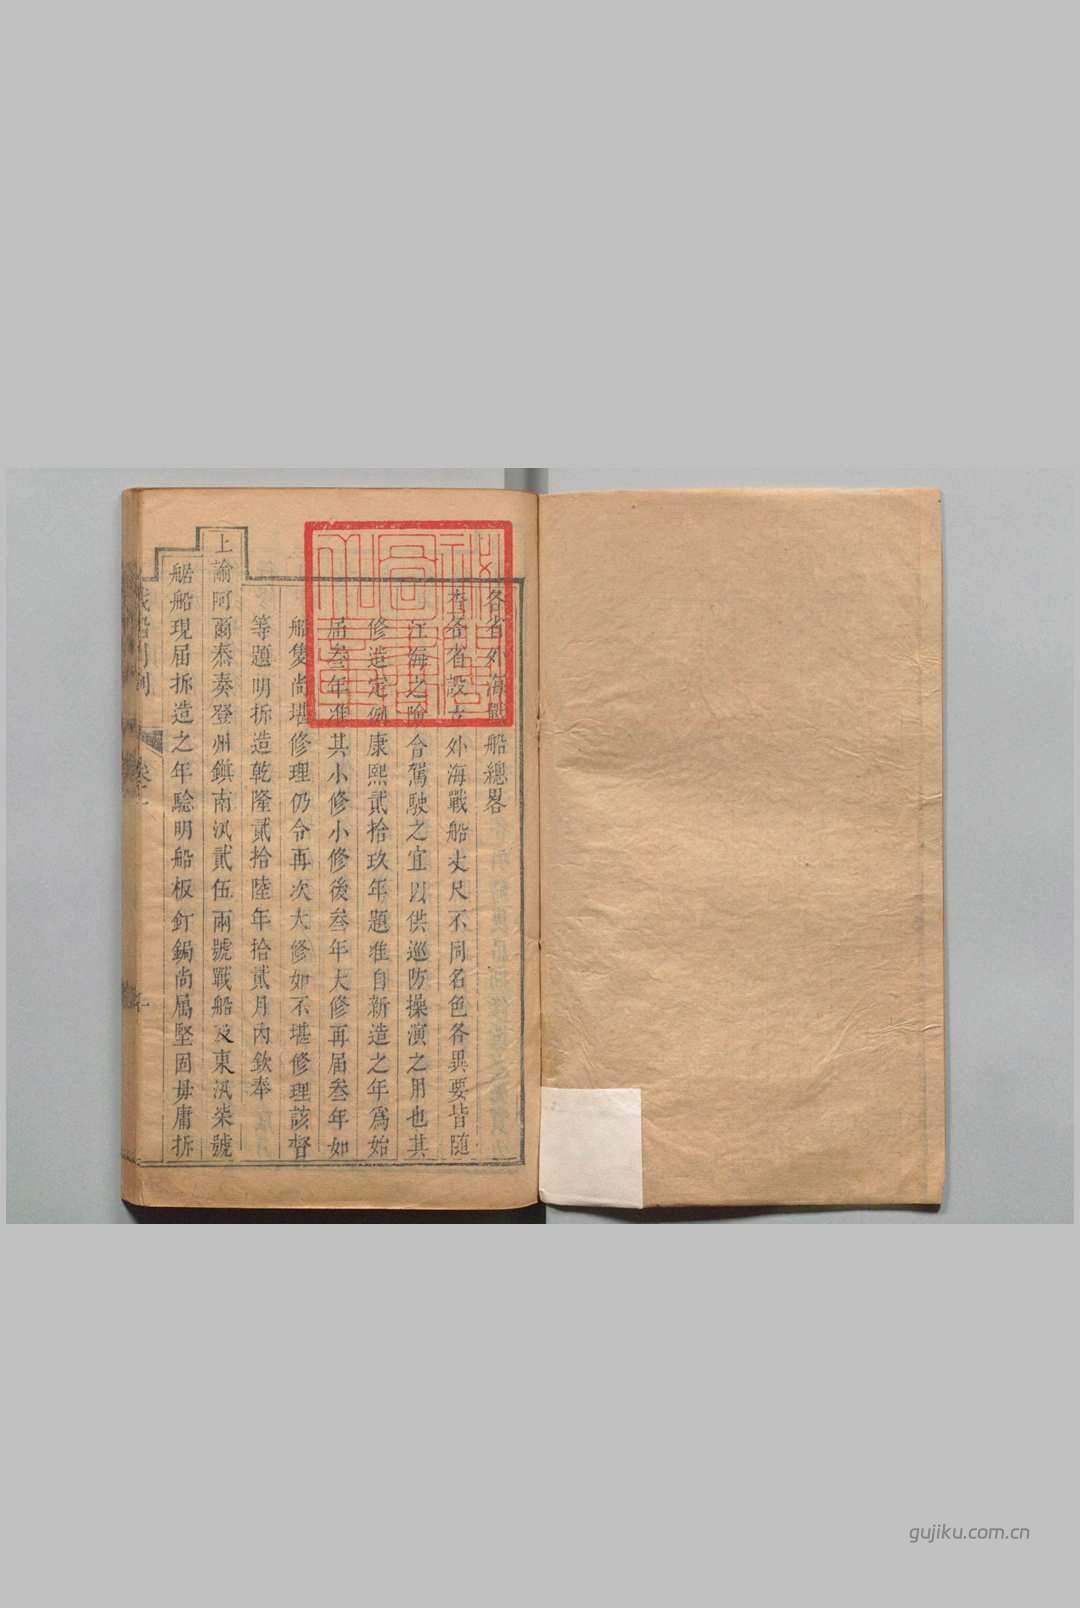 各省外海戰船總畧
查各省設立外海戰船丈尺不同名色各異要皆隨
江海之險合駕駛之宜以供巡防操演之用也其
修造定例康熙貳拾玖年題准自新造之年爲始
届叁年准其小修小修後叁年大修再届叁年如
船隻尚堪修理仍令再次大修如不堪修理該督
等題明拆造乾隆貳拾陸年拾貳月內欽奉
上諭阿爾泰奏登州鎮南汛貳伍兩號戰船及東汛柒號
艍船現届拆造之年騐明船板釘鋦尚属堅固毋庸拆
gujiku.com.cn